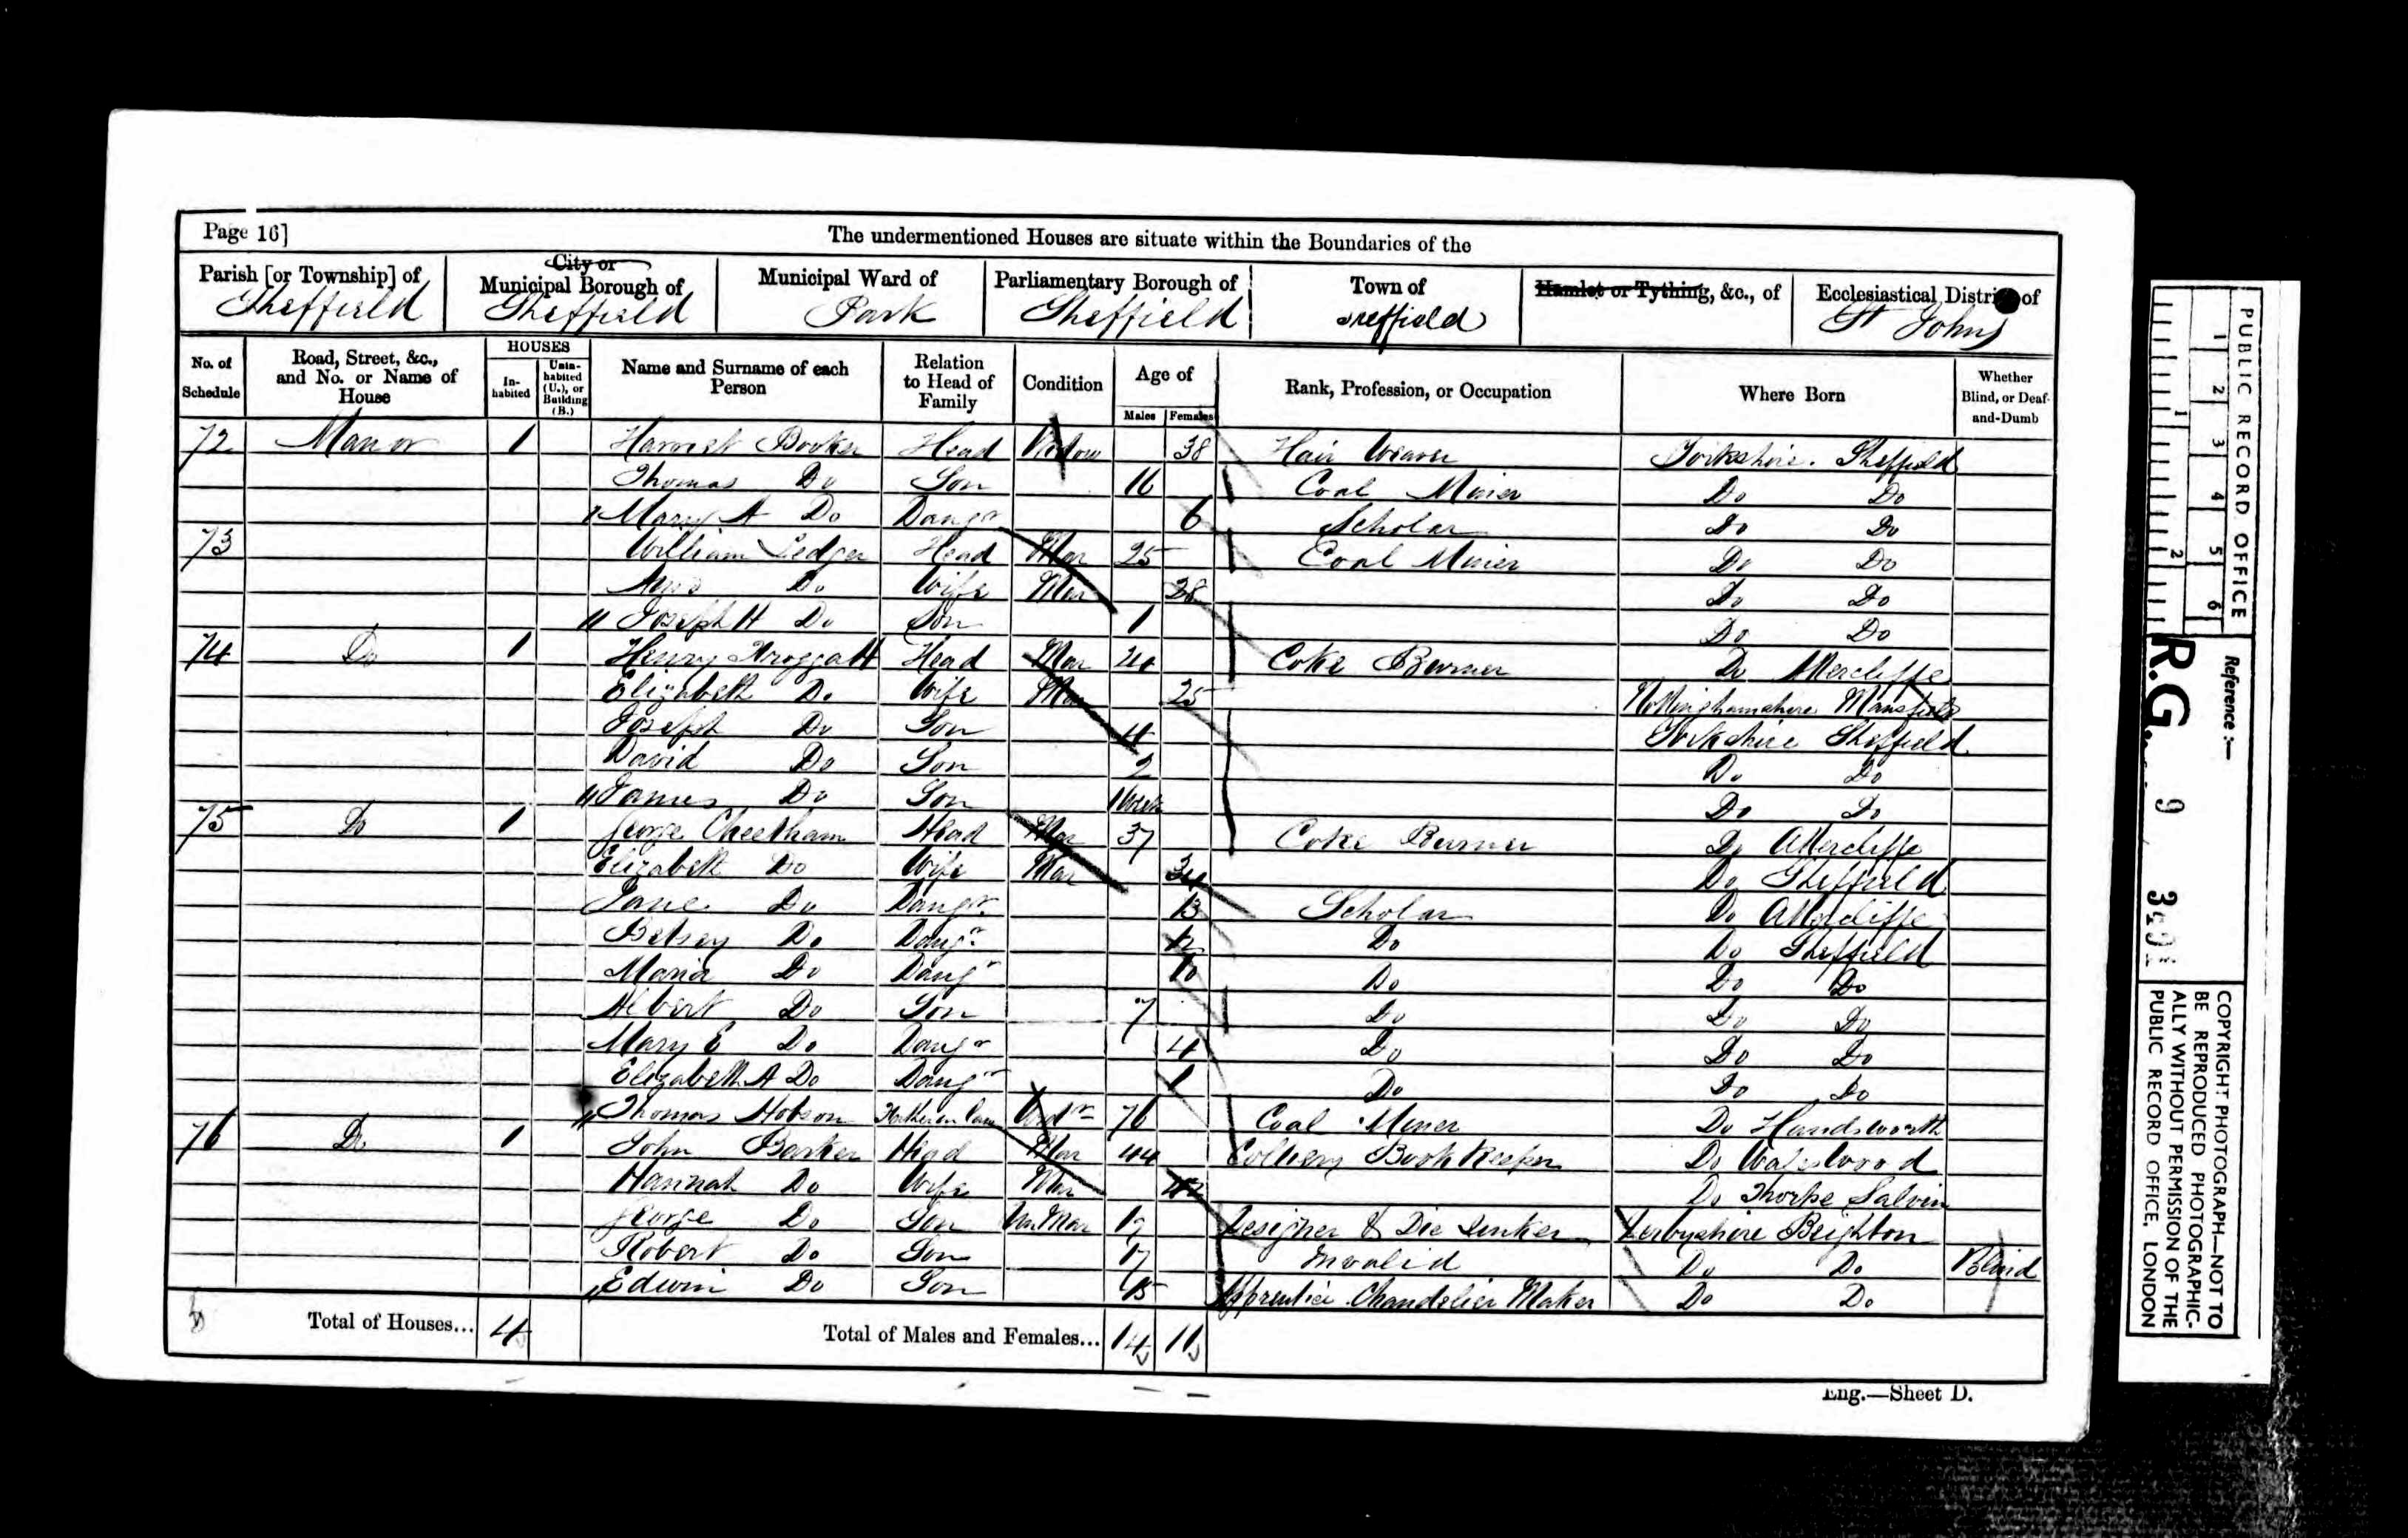 Page 16]
The undermentioned Houses are situate within the Boundaries of the
Parish [or Township] of
Sheffield
City or
Municipal Borough of
Sheffield
Municipal Ward of
Park
Parliamentary Borough of
Sheffield
Town of
Sheffield
Hamlet or Tything, &c., of
Ecclesiastical District of
St Johns
No. of Schedule
Road, Street, &c., and No. or Name of House
HOUSES
In-habited
Unin-habited (U.), or Building (B.)
Name and Surname of each Person
Relation to Head of Family
Condition
Age of
Males
Females
Rank, Profession, or Occupation
Where Born
Whether Blind, or Deaf-and-Dumb
72 Manor 1 Harriet Booker Head Widow 38 Hair Weaver Yorkshire. Sheffield
Thomas Do Son 16 Coal Miner Do Do
Mary A Do Daugr 6 Scholar Do Do
73 William Ledger Head Mar 25 Coal Miner Do Do
Do Wife Mar 28 Do Do
Joseph H Do Son 1 Do Do
74 Do 1 Henry Froggatt Head Mar Coke Burner Do Attercliffe
Elizabeth Do Wife Mar 25 Nottinghamshire Mansfield
Joseph Do Son 4 Yorkshire Sheffield
David Do Son 2 Do Do
James Do Son 1 Week Do Do
75 Do 1 George Cheetham Head Mar 37 Coke Burner Do Attercliffe
Elizabeth Do Wife Mar 34 Do Sheffield
Jane Do Daugr. 13 Scholar Do Attercliffe
Betsey Do Daugr. 12 Do Do Sheffield
Maria Do Daugr 10 Do Do Do
Albert Do Son 7 Do Do Do
Mary E Do Daugr 4 Do Do Do
Elizabeth A Do Daugr 1 Do Do Do
Thomas Hobson Father in Law Widr 76 Coal Miner Do Handsworth
76 Do 1 John Barker Head Mar 44 Colliery Book Keeper Do Waleswood
Hannah Do Wife Mar Do Thorpe Salvin
George Do Son Un Mar 19 Designer & Die Sinker Derbyshire Beighton
Robert Do Son 17 Invalid Do Do Blind
Edwin Do Son 15 Apprentice Chandelier Maker Do Do
Total of Houses... 4
Total of Males and Females... 14 11
Eng.—Sheet D.
PUBLIC RECORD OFFICE
1 2 3 4 5 6
1 2
Reference :—
R.G. 9
COPYRIGHT PHOTOGRAPH—NOT TO
BE REPRODUCED PHOTOGRAPHIC-
ALLY WITHOUT PERMISSION OF THE
PUBLIC RECORD OFFICE, LONDON